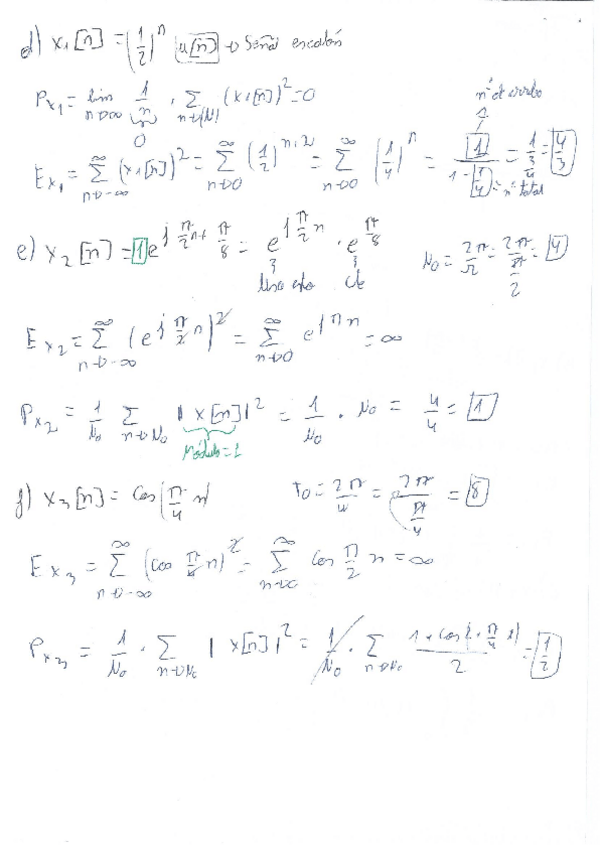 d) x₁[n] = (1/2)ⁿ u[n] → Señal escalón
nº de arriba
Px₁ = lim n→∞ 1/n · Σ n→(N) (x₁[n])² = 0
0
Ex₁ = Σ n→-∞ ^∞ (x₁[n])² = Σ n→0 ^∞ (1/2)^(n·2) = Σ n→0 ^∞ (1/4)ⁿ = 1/(1 - 1/4) = 1/(3/4) = 4/3
nº total
e) x₂[n] = 1 e^(j π/2 n + π/8) = e^(j π/2 n) · e^(π/8) N₀ = 2π/Ω = 2π/(π/2) = 4
cte
Ex₂ = Σ n→-∞ ^∞ (e^(j π/2 n))² = Σ n→0 ^∞ e^(jπn) = ∞
Px₂ = 1/N₀ Σ n→N₀ |x[n]|² = 1/N₀ · N₀ = 4/4 = 1
Módulo = 1
f) x₃[n] = cos(π/4 n) T₀ = 2π/w = 2π/(π/4) = 8
Ex₃ = Σ n→-∞ ^∞ (cos π/4 n)² = Σ n→∞ ^∞ cos π/2 n = ∞
Px₃ = 1/N₀ · Σ n→N₀ |x[n]|² = 1/N₀ · Σ n→N₀ (1 + cos(2 · π/4 n))/2 = 1/2